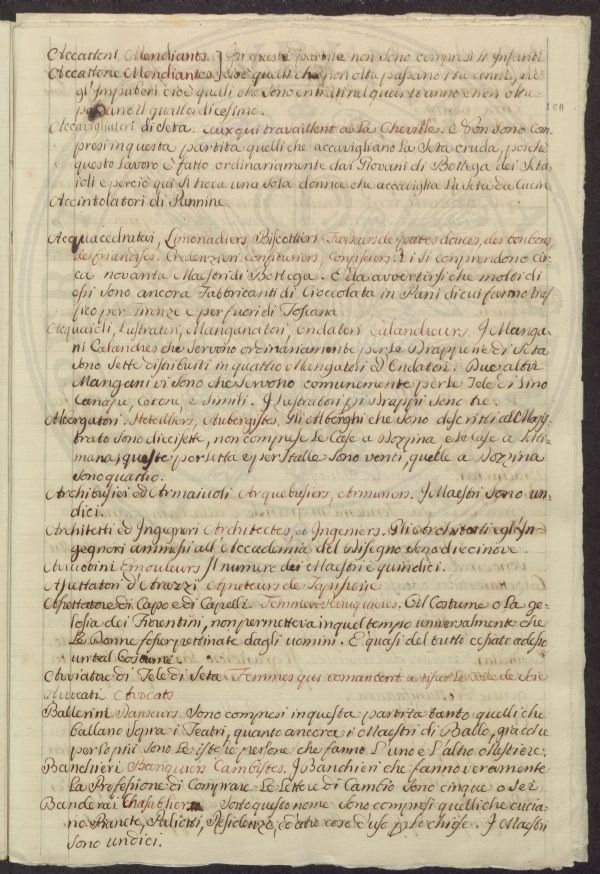 Accattoni Mendiants. In queste due partite non sono compresi li Infanti
Accattone Mendiantes cioè quelli che non oltrepassano i tre anni, nè
gl'Impuberi cioè quelli che sono entrati nel quarto anno e non oltre-
passano il quattordicesimo.
100
Accavigliatori di Seta. Ceux qui travaillent a la Cheville. E Non sono com-
presi in questa partita quelli che accavigliano la Seta cruda, poichè
questo lavoro è fatto ordinariamente dai Giovani di Bottega dei Seta-
ioli e perciò qui si trova una sola donna che accaviglia la Seta da Cucire
Accintolatori di Pannine.
Acquacedratai, Limonadiers Biscottieri Faiseurs de pates douces, des bonbons,
de friandises. Credenzieri Confituriers, Confiseurs. Vi si comprendono cir-
ca novanta Maestri di Bottega. È da avvertirsi che molti di
essi sono ancora Fabbricanti di Cioccolata in Pani di cui fanno traf-
fico per Firenze e per fuori di Toscana
Acquaioli, Lustratori, Manganatori, Ondatori Calandreurs. I Manga-
ni Calandres che servono ordinariamente per le Drapperie di Seta
sono Sette distribuiti in quattro Mangatori ed Ondatori. Due altri
Mangani vi sono che servono comunemente per le Tele di Lino
Canapa, Cotone e simili. I Lustratori di Drappi sono tre.
Albergatori. Hotelliers, Aubergistes. Gli Alberghi che sono descritti al Magi-
strato sono diciesette, non comprese le Case a Dozzina e le Case a Setti-
mana; queste per Letta e per Stalle sono venti, quelle a Dozzina
sono quattro.
Archibusieri ed Armaiuoli Arquebusiers, Armuriers. I Maestri sono un-
dici.
Architetti ed Ingegneri Architectes, et Ingeniers. Gli Architetti e gl'In-
gegneri ammessi all'Accademia del Disegno sono diecinove.
Arruotini Emouleurs Il numero dei Maestri è quindici.
Assettatori d'Arazzi Apreteurs de Tapisserie
Assettatore di Capo e di Capelli Femmes Peruquieres. Il Costume o la ge-
losia dei Fiorentini, non permetteva in quel tempo universalmente che
le Donne fosser pettinate dagli uomini. È quasi del tutto cessato adesso
un tal Costume.
Avviatore di Tele di Seta. Femmes qui comancent a tisser le Toile de Soie
Avvocati Avocats
Ballerini Danseurs Sono compresi in questa partita tanto quelli che
ballano sopra i Teatri, quanto ancora i Maestri di Ballo, giacchè
per lo più sono le istesse persone che fanno l'uno e l'altro mestiere.
Banchieri Banquiers Cambistes. I Banchieri che fanno veramente
la Professione di Comprare le Lettere di Cambio sono cinque o sei
Banderai Chasubliers Sotto questo nome sono compresi quelli che cucia-
no Pianete, Paliotti, Residenze, ed altre cose d'uso per le chiese. I Maestri
sono undici.